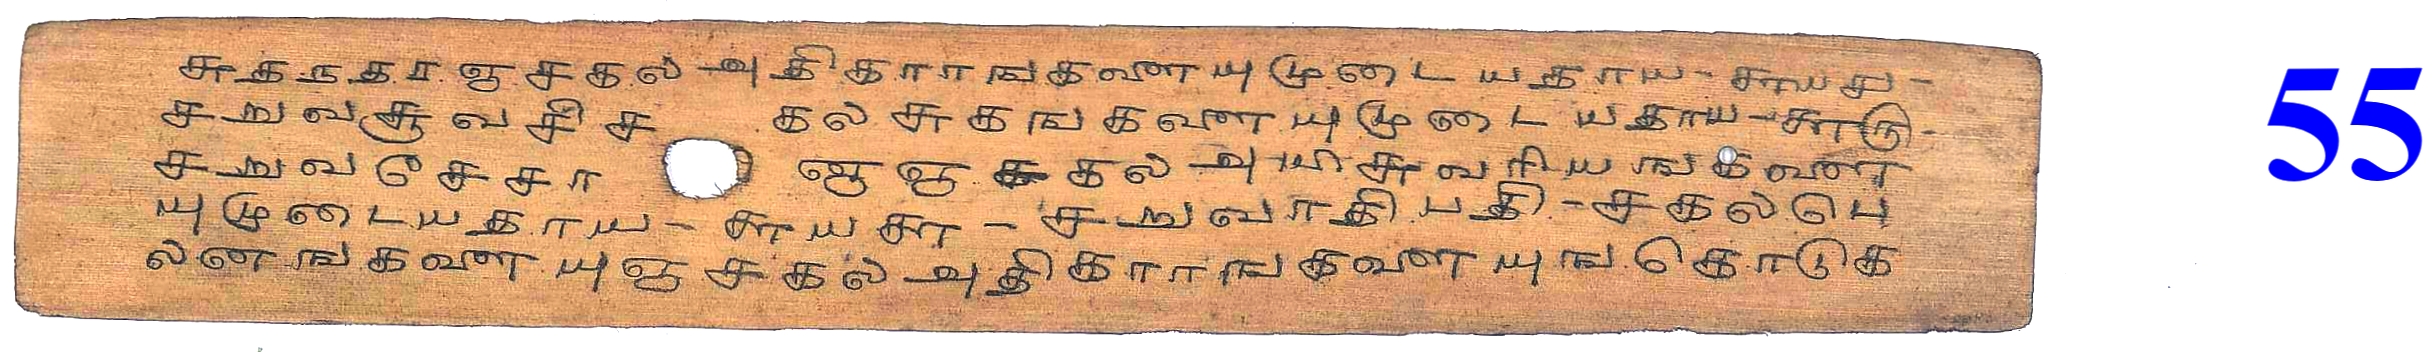 சுத ந த ர ஞ சகல அதிகாராங களையுமுடையதாய - சுாயசு -
சறுவசூவசிச கல சுகங களையுமுடையதாய - சுாடு -
சறுவ சேசா ஞஞ சகல அயிசுவரியங களை
யுமுடையதாய - சுாயசுா - சறுவாதி பதி - சகல பெ
லனங களையுஞ சகல அதிகாராங களையுங கொடுக
55